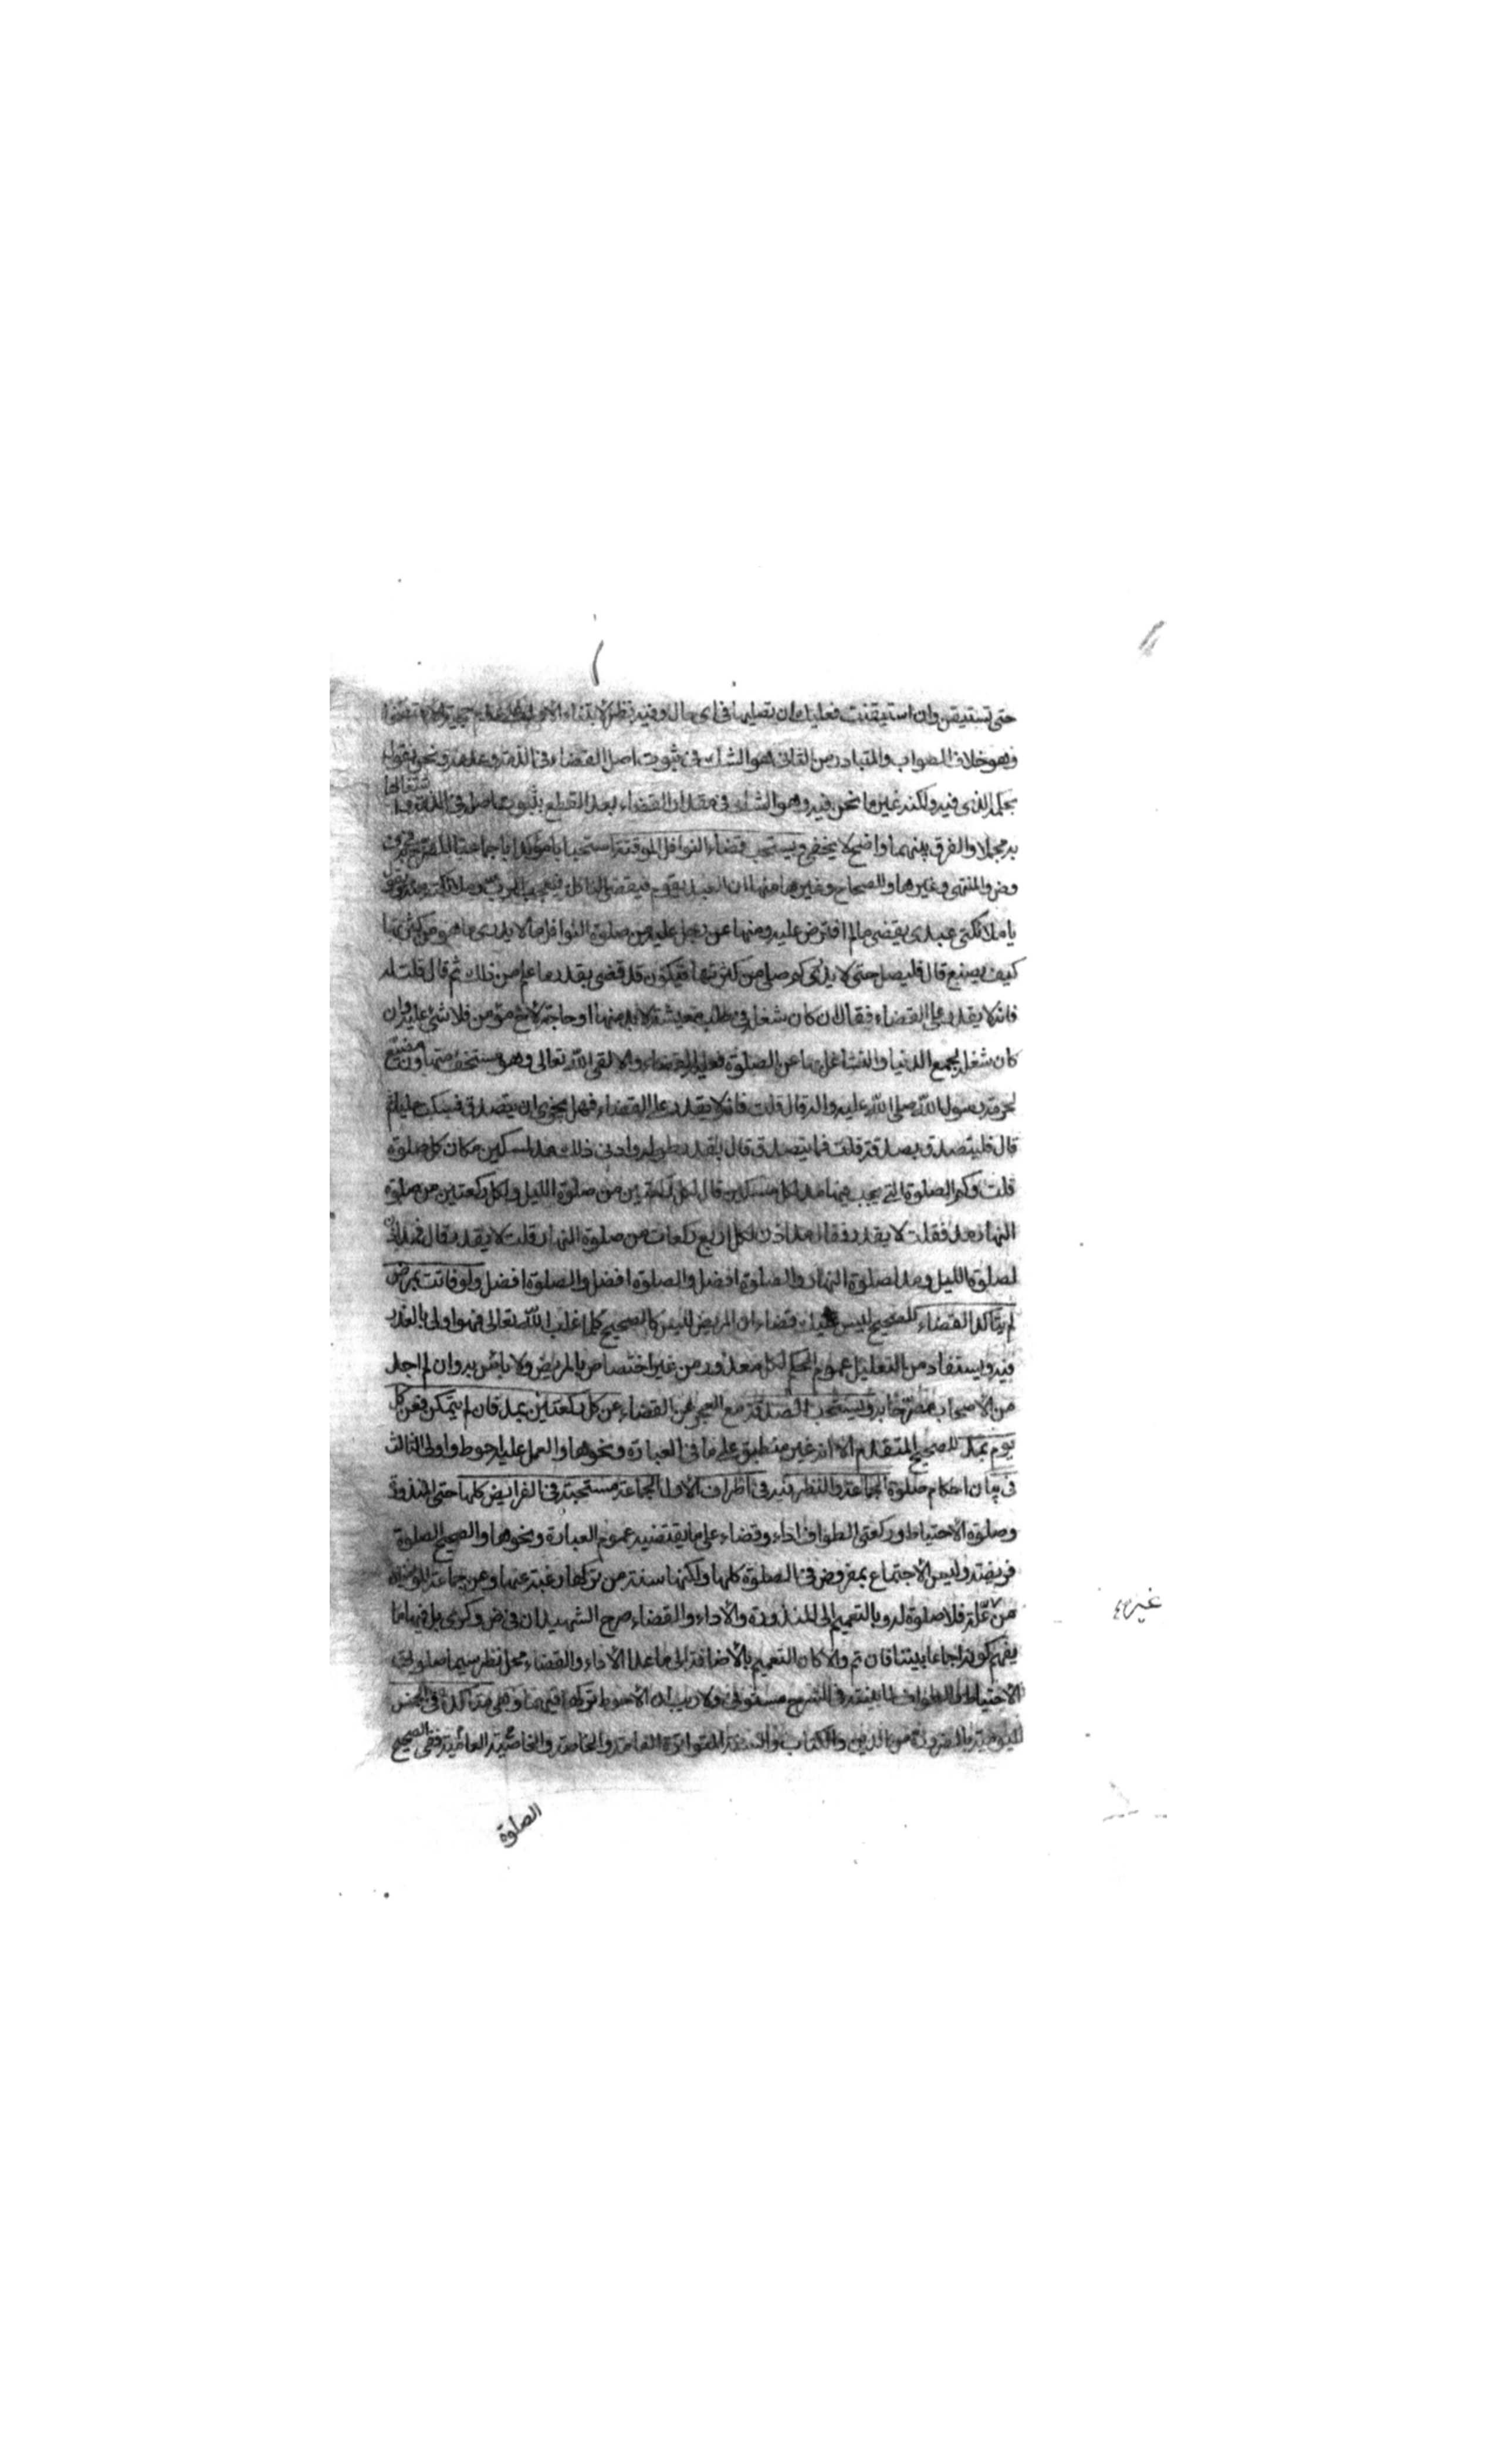 حتى تستيقن وان استيقنت فعليك ان تصليها في اى حال وفيه نظر لابتناء
وهو خلاف الصواب والمتبادر من الثانى هو الشك في ثبوت اصل القضاء في الذمة وعدمه ونحن نقول
بحكمه الذى فيه ولكنه غير ما نحن فيه وهو الشك في مقدار القضاء بعد القطع بثبوت اصله في الذمة و اشتغالها
به مجملا والفرق بينهما واضح لا يخفى ويستحب قضاء النوافل الموقتة استحبابا مؤكدا باجماعنا
وض والمنتهى وغيرهما والصحاح وغيرها منها ان العبد يقوم فيقضى النافلة فيعجب الرب ملائكته منه ويقول
يا ملائكتى عبدى يقضى ما لم افترض عليه ومنها عن رجل عليه من صلوة النوافل ما لا يدرى ما هو من كثرتها
كيف يصنع قال فليصل حتى لا يدرى كم صلى من كثرتها فيكون قد قضى بقدر ما علم من ذلك ثم قال قلت له
فانه لا يقدر على القضاء فقال ان كان شغله في طلب معيشة لا بد منها او حاجة لاخ مؤمن فلا شئ عليه وان
كان شغله بجمع الدنيا والتشاغل بها عن الصلوة فعليه القضاء والا لقى الله تعالى وهو مستخف متهاون مضيع
لحرمة رسول الله صلى الله عليه واله قال قلت فانه لا يقدر على القضاء فهل يجزى ان يتصدق فسكت مليا ثم
قال فليتصدق بصدقة قلت فما يتصدق قال بقدر طوله وادنى ذلك مد لمسكين مكان كل صلوة
قلت وكم الصلوة التى يجب فيها مد لكل مسكين قال لكل ركعتين من صلوة الليل ولكل ركعتين من صلوة
النهار مد فقلت لا يقدر فقال مد اذن لكل اربع ركعات من صلوة النهار قلت لا يقدر قال فمد اذن
لصلوة الليل ومد لصلوة النهار والصلوة افضل والصلوة افضل ولو فاتت بمرض
لم يتأكد القضاء للصحيح ليس عليك قضاء ان المريض ليس كالصحيح كلما غلب الله تعالى فهو اولى بالعذر
فيه ويستفاد من التعليل عموم الحكم لكل معذور من غير اختصاص بالمريض ولا بأس به وان لم اجد
من الاصحاب مصرحا به ويستحب الصدقة مع العجز عن القضاء عن كل ركعتين بمد فان لم يتمكن فعن كل
يوم بمد للصحيح المتقدم الا انه غير منطبق على ما في العبارة ونحوها والعمل عليه احوط واولى الثالث
في بيان احكام صلوة الجماعة والنظر فيه في اطراف الاول الجماعة مستحبة في الفرايض كلها حتى المنذورة
وصلوة الاحتياط وركعتى الطواف اداء وقضاء على ما يقتضيه عموم العبارة ونحوها والصحيح الصلوة
فريضة وليس الاجتماع بمفروض في الصلوة كلها ولكنها سنة من تركها رغبة عنها وعن جماعة المؤمنين
من غير علة فلا صلوة له وبالتعميم الى المنذورة والاداء والقضاء صرح الشهيدان في ض وكرى بل فيهما ما
يفهم كونه اجماعا بيننا فان تم والا كان التعميم بالاضافة الى ما عدا الاداء والقضاء محل نظر سيما صلوتى
الاحتياط والطواف لما بينته في الشرح مستوفى ولا ريب ان الاحوط تركها فيهما وهى متأكدة في الخمس
اليومية بالضرورة من الدين والكتاب والسنة المتواترة العامة والخاصة ففى الصحيح
غيره
الصلوة